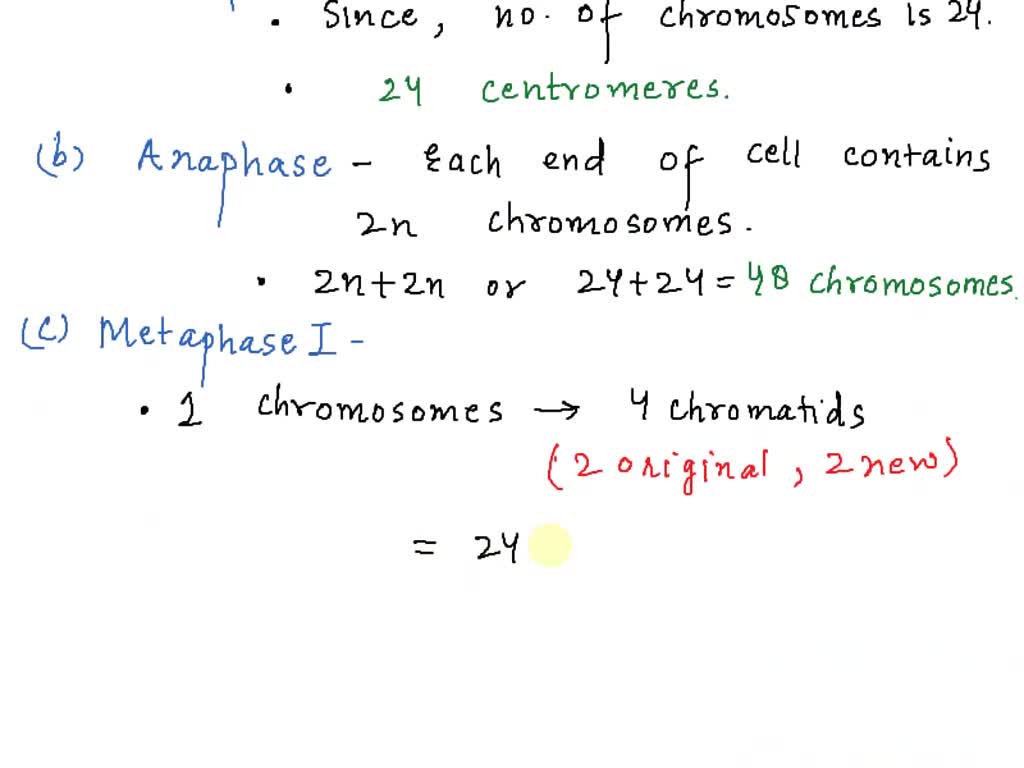 • Since, no. of chromosomes is 24.
• 24 centromeres.
(b) Anaphase - Each end of cell contains
2n chromosomes.
• 2n+2n or 24+24 = 48 chromosomes.
(c) Metaphase I -
• 1 chromosomes → 4 chromatids
(2 original, 2 new)
= 24